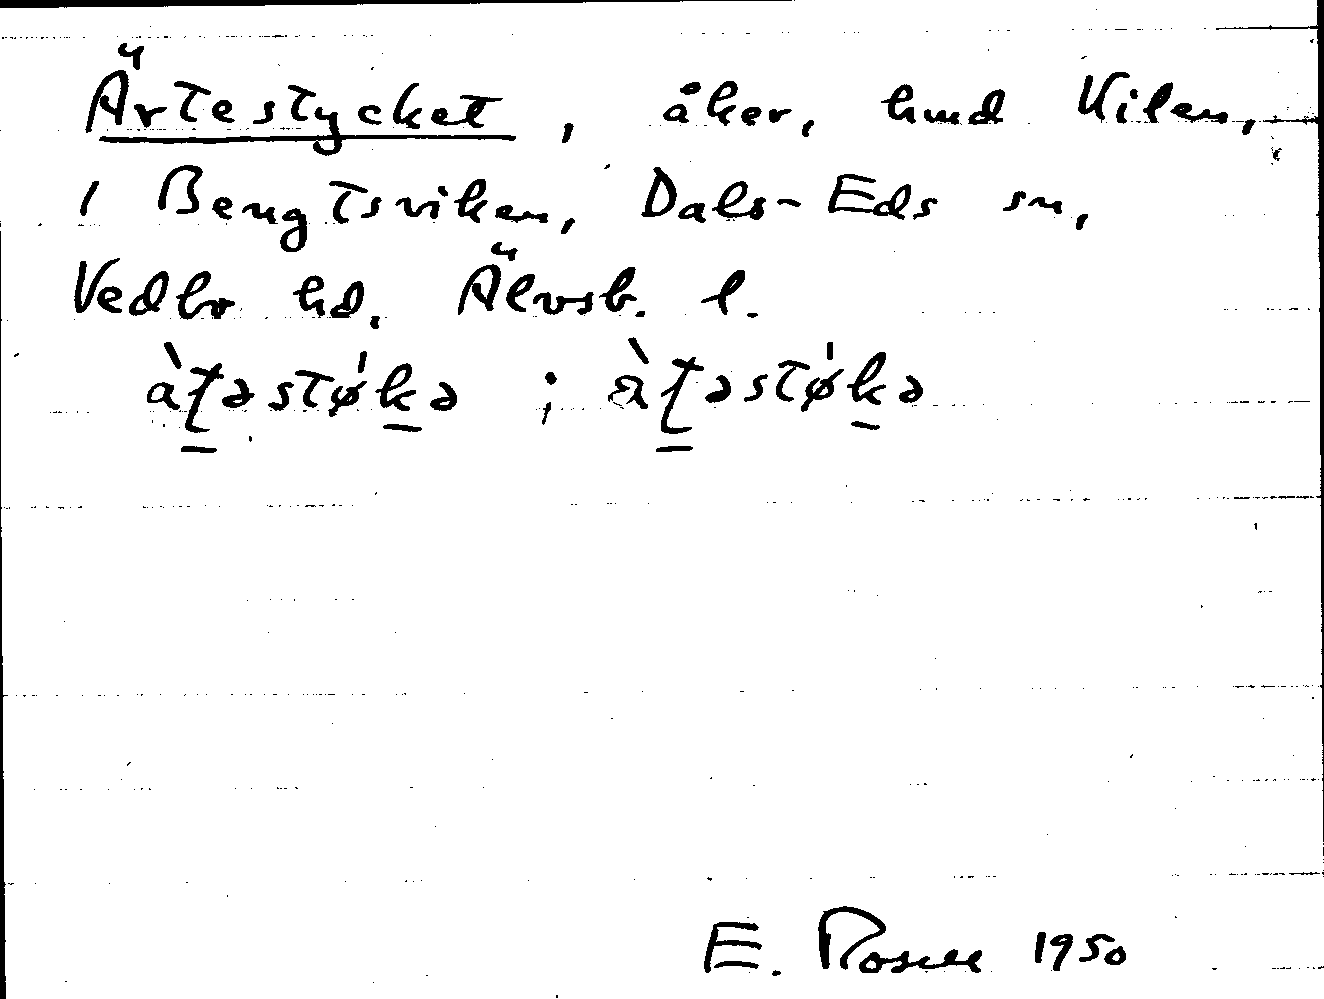 Ärtestycket, åker, hmd Kilen,
1 Bengtsviken, Dals-Eds sn,
Vedbo hd. Älvsb. l.
àʈəstǿkə ; æ̀ʈəstǿkə
E. Rosell 1950